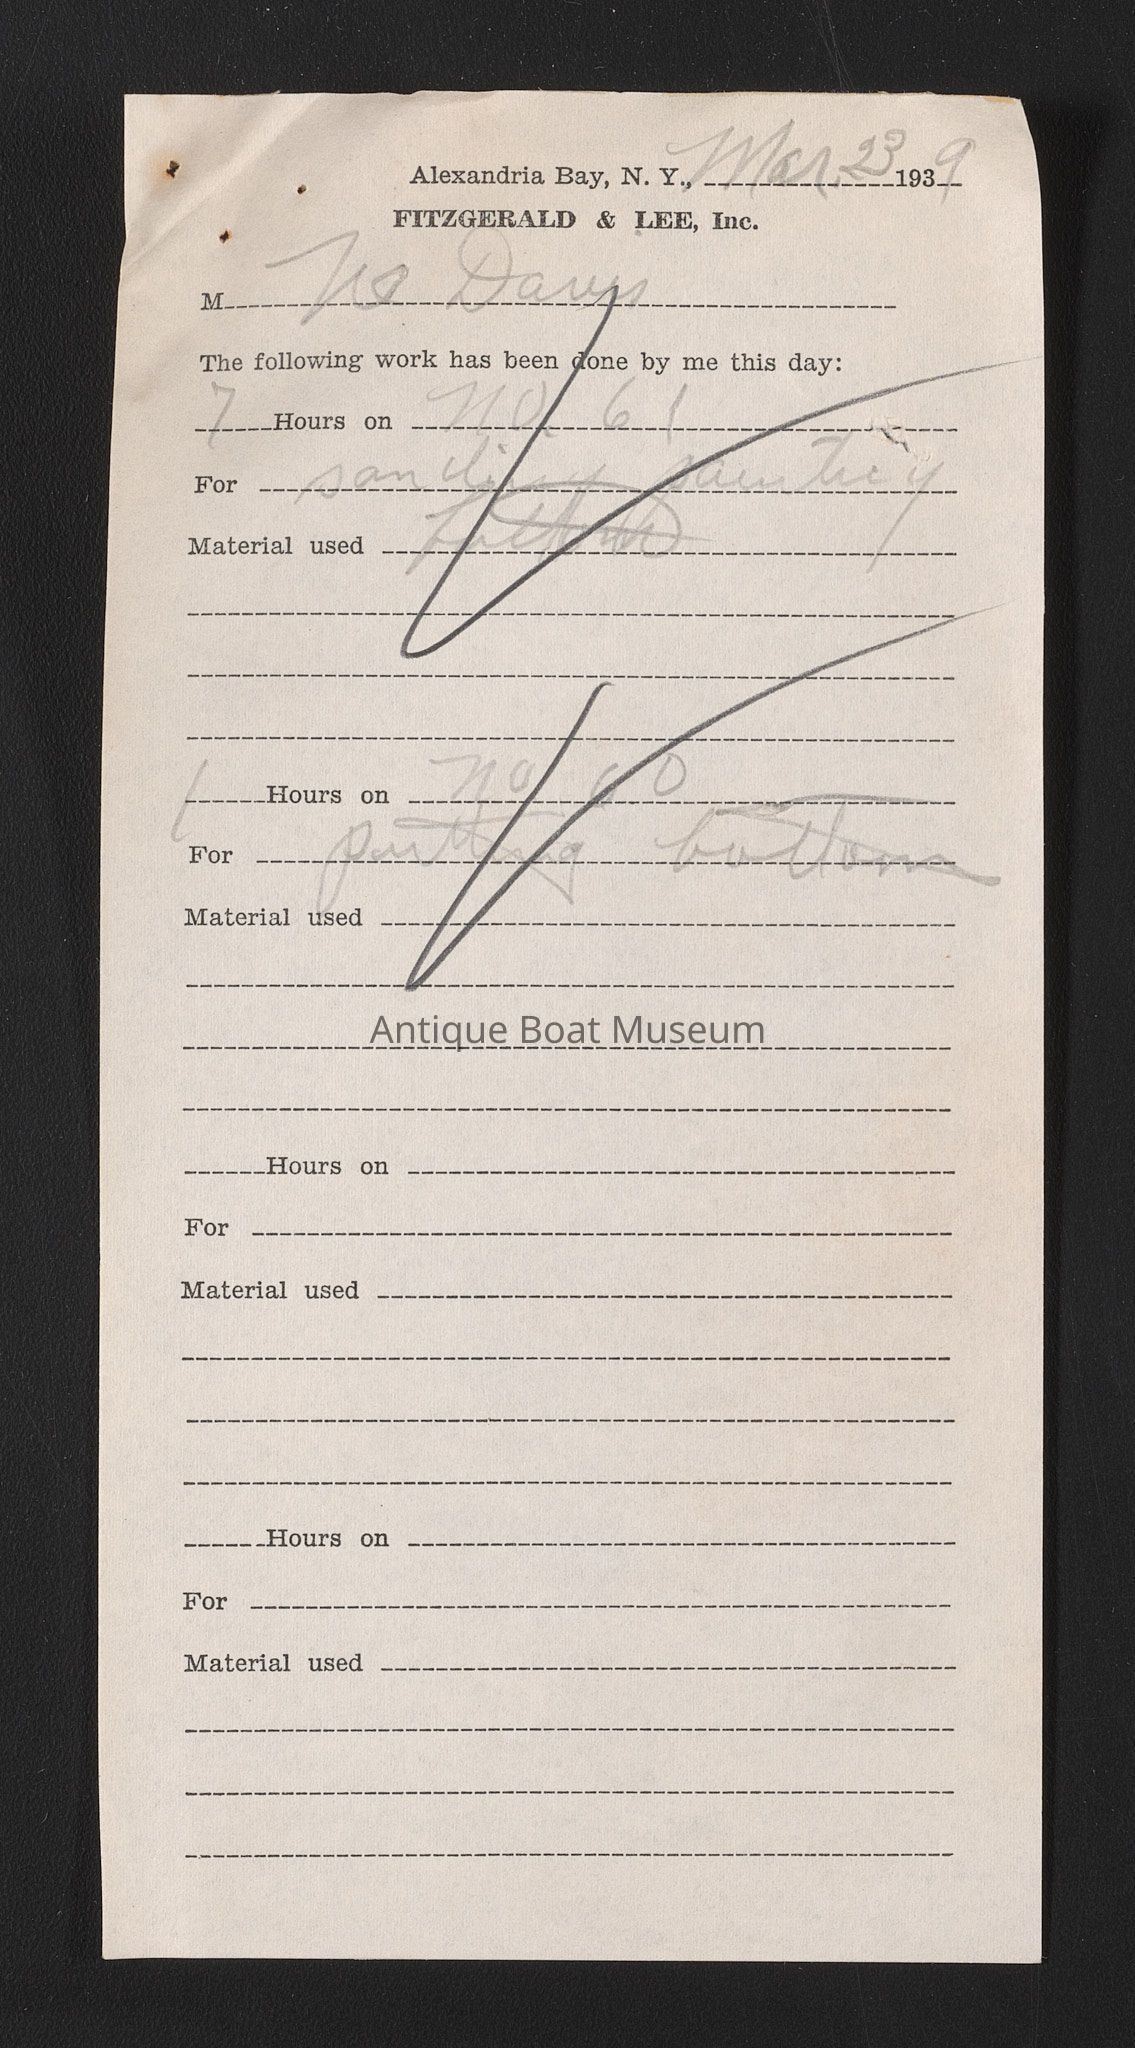 Alexandria Bay, N. Y., Mar. 23 1939
FITZGERALD & LEE, Inc.
M Davis
The following work has been done by me this day:
7 Hours on No 61
For sanding painting
Material used bottom
1 Hours on No 60
For putting bottom
Material used
Antique Boat Museum
Hours on
For
Material used
Hours on
For
Material used